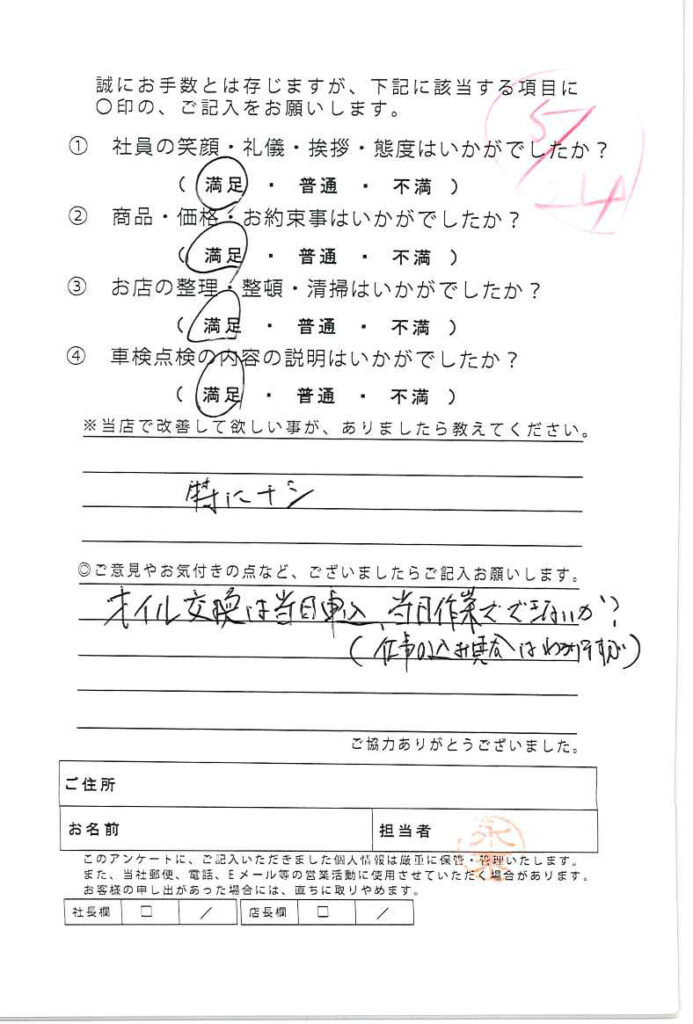 誠にお手数とは存じますが、下記に該当する項目に
〇印の、ご記入をお願いします。
5/24
① 社員の笑顔・礼儀・挨拶・態度はいかがでしたか？
( 満足 ・ 普通 ・ 不満 )
② 商品・価格・お約束事はいかがでしたか？
( 満足 ・ 普通 ・ 不満 )
③ お店の整理・整頓・清掃はいかがでしたか？
( 満足 ・ 普通 ・ 不満 )
④ 車検点検の内容の説明はいかがでしたか？
( 満足 ・ 普通 ・ 不満 )
※当店で改善して欲しい事が、ありましたら教えてください。
特にナシ
◎ご意見やお気付きの点など、ございましたらご記入お願いします。
オイル交換は当日申込、当日作業でできないか？
(仕事の込み具合はわかりますが)
ご協力ありがとうございました。
ご住所
お名前 担当者
このアンケートに、ご記入いただきました個人情報は厳重に保管・管理いたします。
また、当社郵便、電話、Eメール等の営業活動に使用させていただく場合があります。
お客様の申し出があった場合には、直ちに取りやめます。
社長欄 □ / 店長欄 □ /